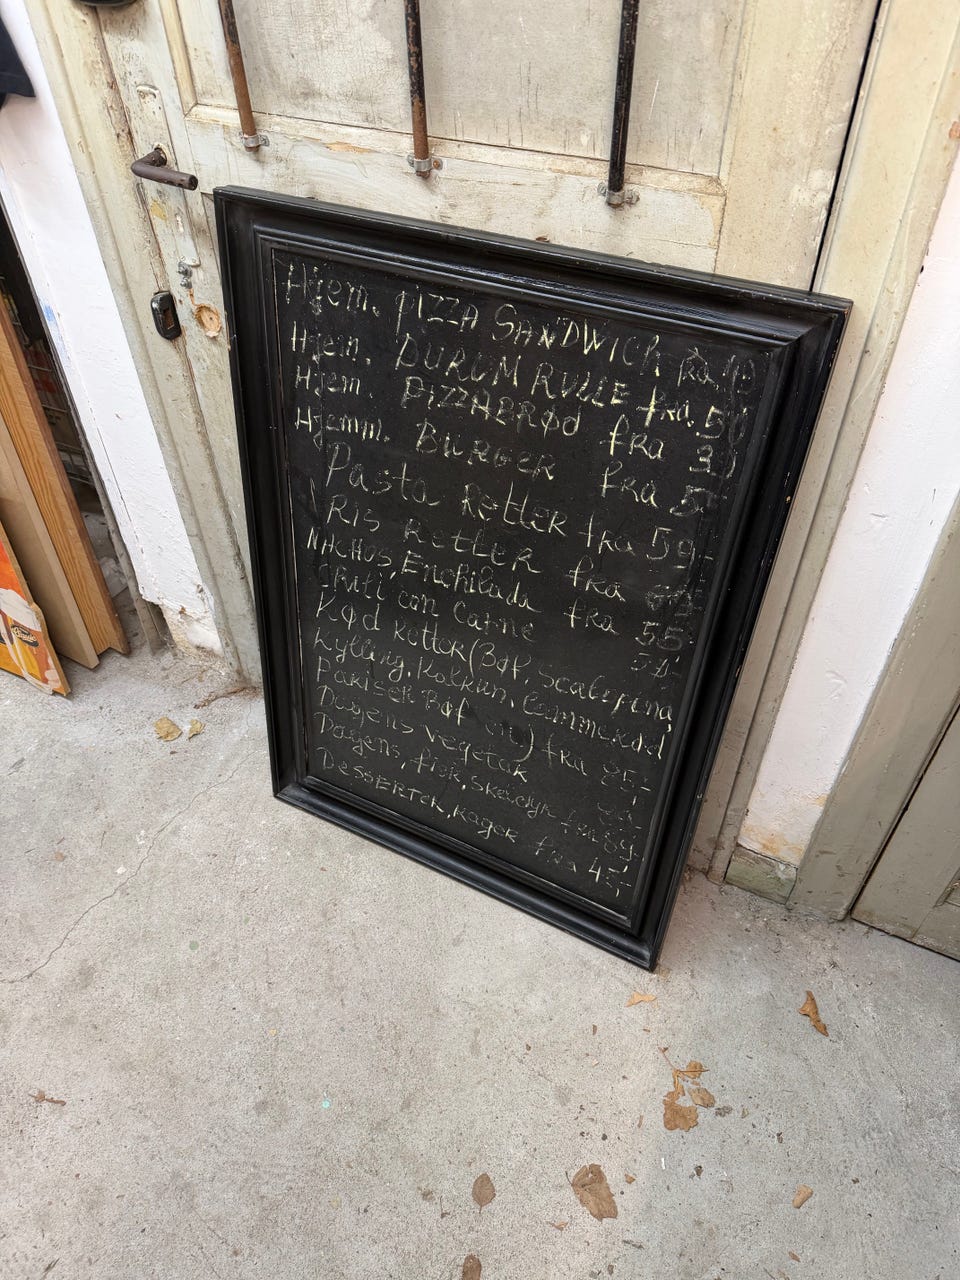 Hjem. PIZZA SANDWICh fRa
Hjem. DURUM RULLE fRa.
Hjem. PIZZABRØD fRa
Hjemm. BURGER fRa
Pasta Retter fRa 59,-
RIS Retter fRa
NACHOS, Enchilada fRa 55
con Carne
Kød Retter (Bøf,
Kylling, Kalkun,
PARiseR Bøf fRa 85,-
Dagens vegetaR
Dagens, fisk, fRa 89,-
DessERTeR, Kager fRa 45,-